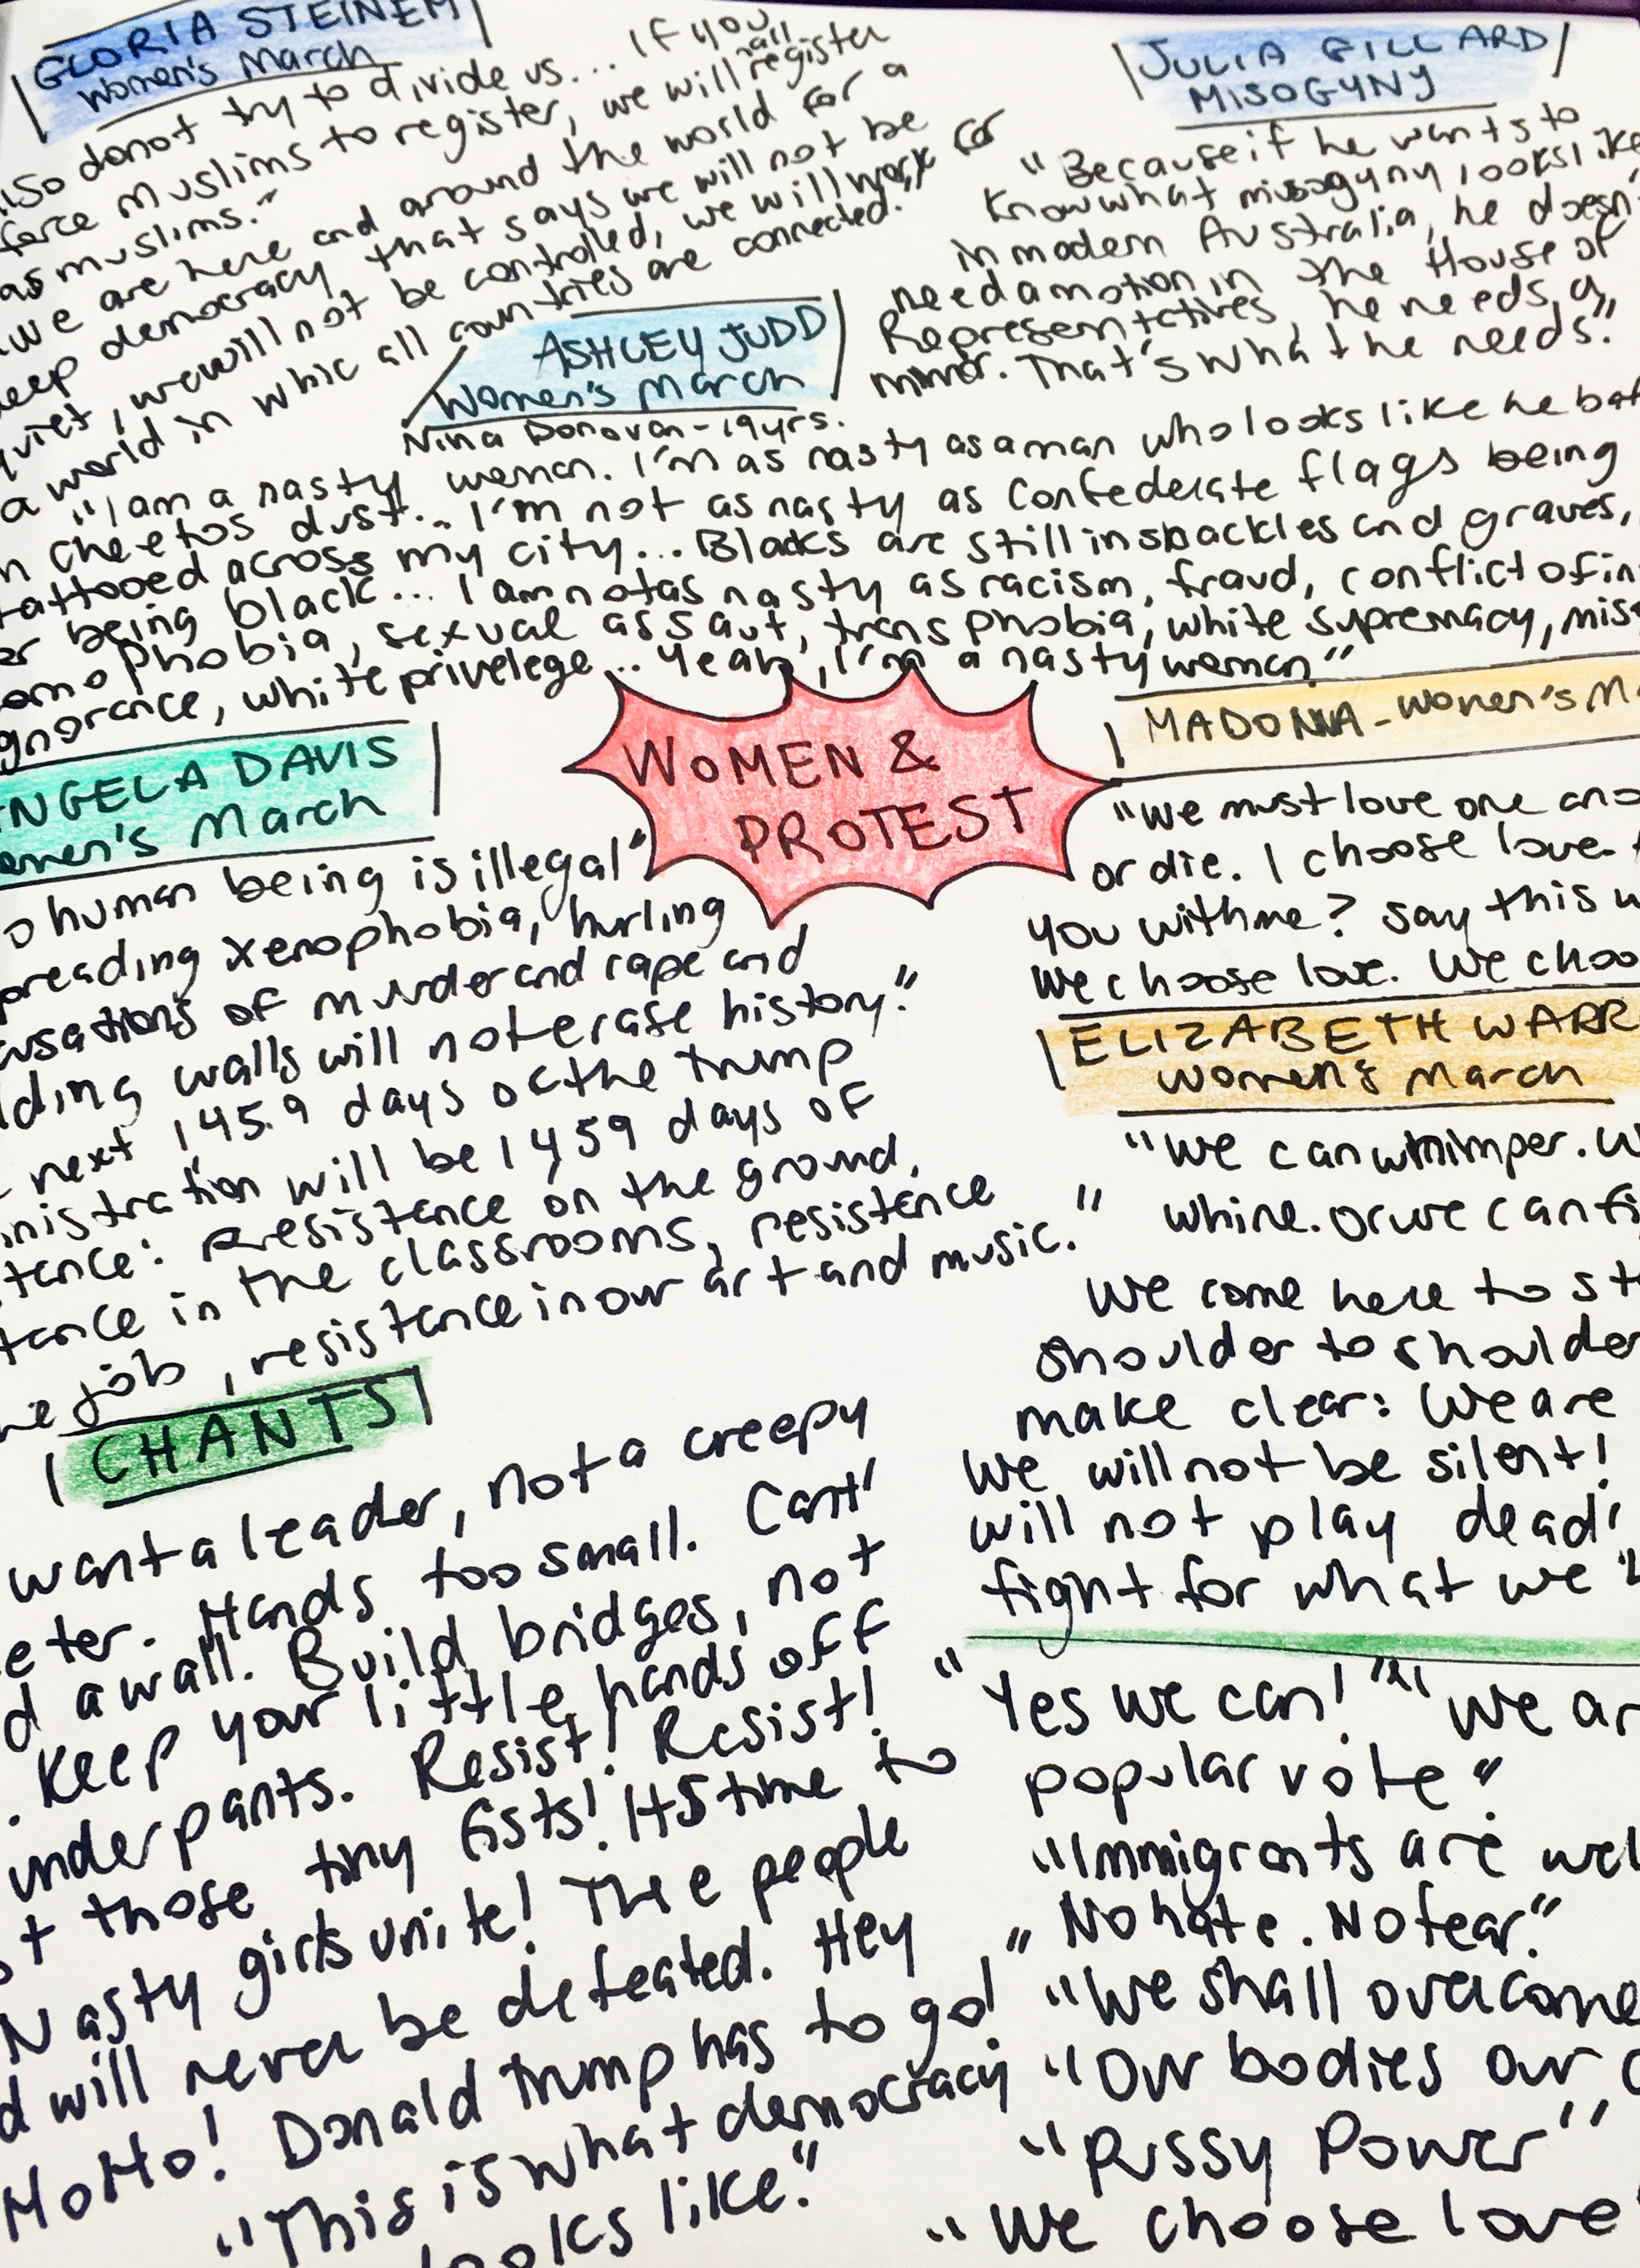 GLORIA STEINEM
Women's March
also do not try to divide us... If you
force Muslims to register, we will all register
as muslims."
we are here and around the world for a
deep democracy that says we will not be
quiet, we will not be controlled, we will work for
a world in whic all countries are connected."
JULIA GILLARD
MISOGYNY
"Because if he wants to
know what misogyny looks like
in modern Australia, he doesn'
need a motion in the House of
Representatives, he needs a
mirror. That's what he needs."
ASHLEY JUDD
Women's March
Nina Donovan - 19yrs.
"I am a nasty woman. I'm as nasty as a man who looks like he bat
in cheetos dust... I'm not as nasty as Confederate flags being
tattooed across my city... Blacks are still in shackles and graves,
for being black... I am not as nasty as racism, fraud, conflict of in
omophobia, sexual assaut, transphobia, white supremacy, miso
gnorance, white privelege... Yeah, I'm a nasty woman"
WOMEN &
PROTEST
NGELA DAVIS
omen's March
o human being is illegal"
preading xenophobia, hurling
usations of murder and rape and
lding walls will not erase history."
next 1459 days of the trump
nistration will be 1459 days of
tance: Resistance on the ground,
tance in the classrooms, resistence
he job, resistance in our art and music."
MADONNA - Women's M
"We must love one ano
or die. I choose love.
you with me? say this w
we choose love. We choo
ELIZABETH WARR
Women's March
"We can whimper. W
whine. or we can fi
We come here to st
shoulder to shoulder
make clear: We are
We will not be silent!
will not play dead!
fight for what we
CHANTS
want a leader, not a creepy
eter. Hands too small. Cant'
d a wall. Build bridges, not
. Keep your little hands off
underpants. Resist! Resist!
t those tiny fists! It's time to
Nasty girls unite! The people
d will never be defeated. Hey
HoHo! Donald trump has to go!
"This is what democracy
looks like."
"Yes we can!" "We ar
popular vote"
"Immigrants are wel
"No hate. No fear."
"We shall overcome
"Our bodies our c
"Pussy Power"
"We choose love"